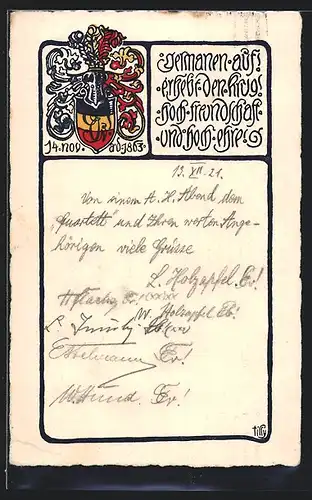 Germanen auf!
erhebt den Krug!
hoch freundschaft
und hoch ehre!
14. nov. 1863.
13. VII. 21.
Von einem A. H. Abend dem
„Quartett" und Ihren werten Ange-
hörigen viele Grüsse
L. Holzapfel Er!
W. Holzapfel Er!
Er!
W. Hund. Er!
tilly